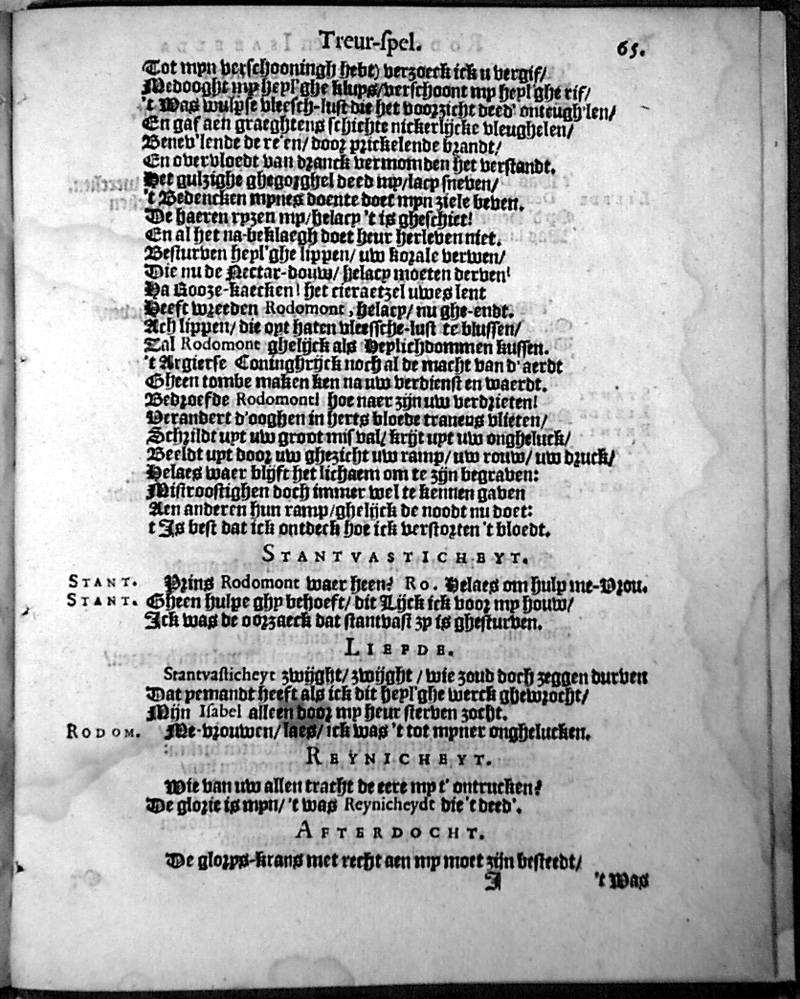 Treur-spel. 65.
Tot mijn verschooningh hebt) verzoeck ick u vergif/
Medooght my heyl'ghe kluys/ verschoont my heyl'ghe rif/
't Was wulpse vleesch-lust die het voorzicht deed' onteugh'len/
En gaf aen graeghtens schichte nickerlijcke vleughelen/
Benev'lende de re'en/ door prickelende brandt/
En overvloedt van dranck vermomden het verstandt.
Het gulzighe ghegorghel deed my/ lacy sneven/
't Bedencken mynes doente doet mijn ziele beven.
De haeren ryzen my/ helacy 't is gheschiet!
En al het na-beklaegh doet heur herleven niet.
Besturven heyl'ghe lippen/ uw korale verwen/
Die nu de Nectar-douw/ helacy moeten derven!
Ha Rooze-kaecken! het cieraetzel uwes lent
Heeft wreeden Rodomont, helacy/ nu ghe-endt.
Ach lippen/ die oyt haten vleessche-lust te blussen/
Zal Rodomont ghelijck als Heylichdommen kussen.
't Argierse Coninghrijck noch al de macht van d'aerdt
Gheen tombe maken ken na uw verdienst en waerdt.
Bedroefde Rodomont! hoe naer zijn uw verdrieten!
Verandert d'ooghen in herts bloede tranens vlieten/
Schrildt uyt uw groot misval/ krijt uyt uw ongheluck/
Beeldt uyt door uw ghezicht uw ramp/ uw rouw/ uw druck/
Helaes waer blijft het lichaem om te zijn begraven:
Mistroostighen doch immer wel te kennen gaven
Aen anderen hun ramp/ ghelijck de noodt nu doet:
t Is best dat ick ontdeck hoe ick verstorten 't bloedt.
STANTVASTICHEYT.
STANT. Prins Rodomont waer heen? Ro. Helaes om hulp me-Vrou.
STANT. Gheen hulpe ghy behoeft/ dit Lijck ick voor my houw/
Ick was de oorzaeck dat stantvast zy is ghesturven.
LIEFDE.
Stantvasticheyt zwijght/ zwijght/ wie zoud doch zeggen durven
Dat yemandt heeft als ick dit heyl'ghe werck ghewrocht/
Mijn Isabel alleen door my heur sterven zocht.
RODOM. Me-vrouwen/ laes/ ick was 't tot mijner onghelucken.
REYNICHEYT.
Wie van uw allen tracht de eere my t'ontrucken?
De glorie is mijn/ 't was Reynicheydt die 't deed'.
AFTERDOCHT.
De glorys-krans met recht aen my moet zijn besteedt/
I 't Was